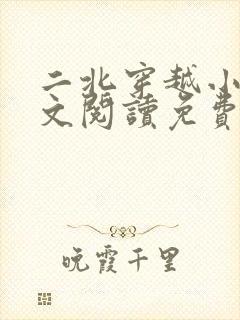 二北穿越小
文閱讀免費
晚霞千里